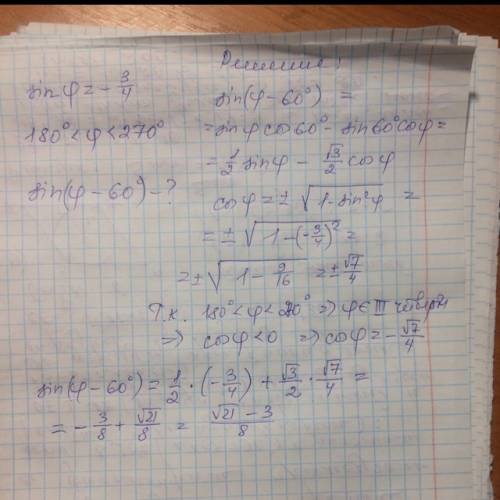 sin φ = - 3/4
180° < φ < 270°
sin(φ - 60°) - ?
Решение:
sin(φ - 60°) =
= sin φ cos 60° - sin 60° cos φ =
= 1/2 sin φ - √3/2 cos φ
cos φ = ± √(1 - sin²φ) =
= ± √(1 - (-3/4)²) =
= ± √(1 - 9/16) = ± √7/4
Т.к. 180° < φ < 270° => φ ∈ III четверти
=> cos φ < 0 => cos φ = - √7/4
sin(φ - 60°) = 1/2 · (-3/4) + √3/2 · √7/4 =
= - 3/8 + √21/8 = (√21 - 3)/8